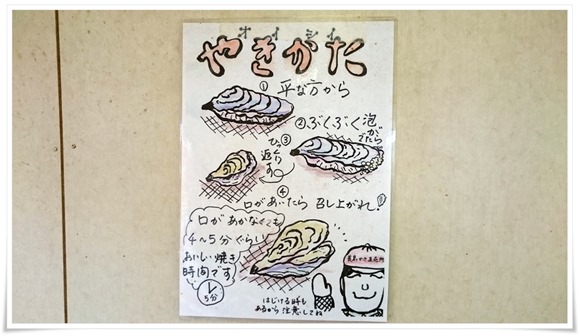 オイシイ
やきかた
① 平な方から
② ぶくぶく泡がでたら
③ ひっくり返す
④ 口があいたら 召し上がれ!!
口があかなくても
4〜5分ぐらいが
おいしい焼き
時間です
5分
はじける時も
あるから 注意してね